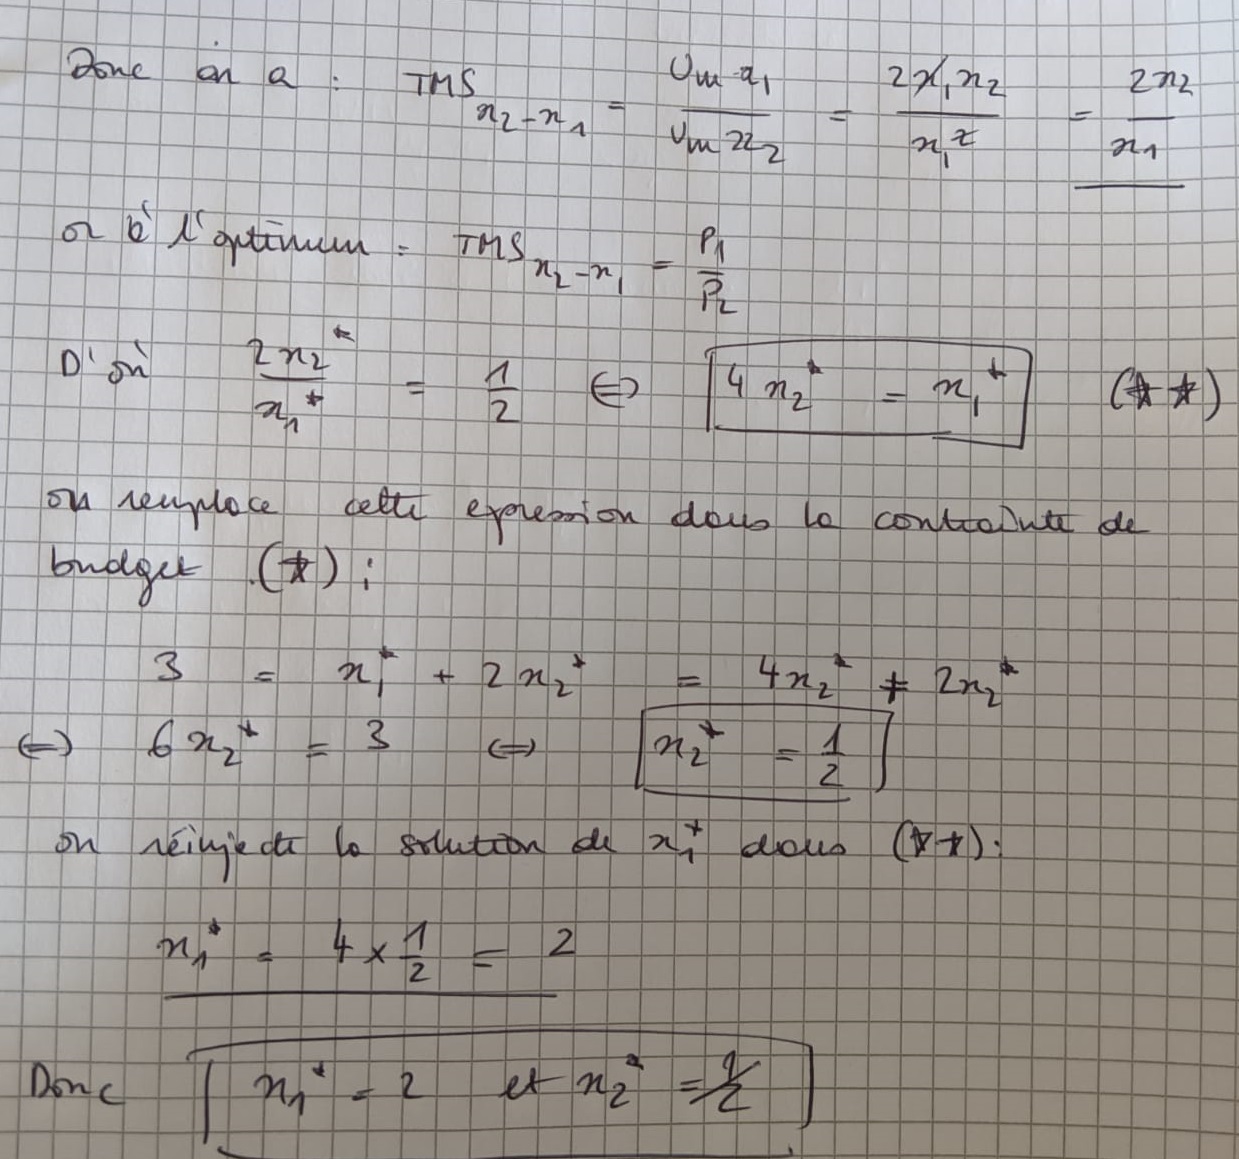 Donc on a : TMS x₂-x₁ = Um x₁ / Um x₂ = 2x₁x₂ / x₁² = 2x₂ / x₁
or à l'optimum : TMS x₂-x₁ = P₁ / P₂
D'où 2x₂* / x₁* = 1/2 ⇔ 4x₂* = x₁* (**)
on remplace cette expression dans la contrainte de
budget (*) :
3 = x₁* + 2x₂* = 4x₂* + 2x₂*
⇔ 6x₂* = 3 ⇔ x₂* = 1/2
on réinjecte la solution de x₁* dans (**) :
x₁* = 4 × 1/2 = 2
Donc x₁* = 2 et x₂* = 1/2